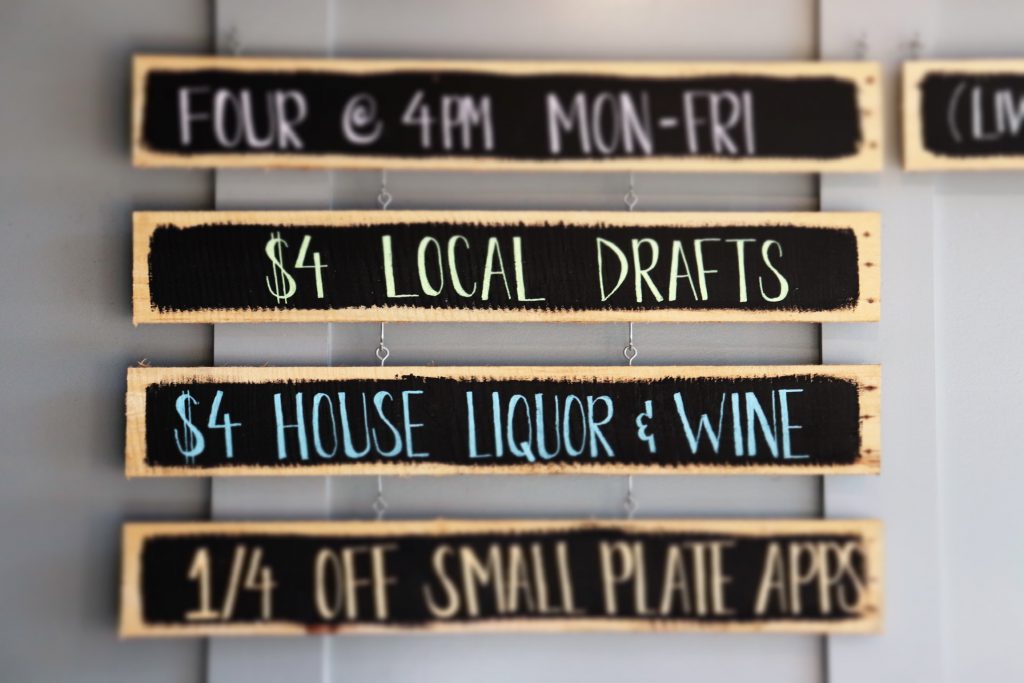 FOUR @ 4PM MON-FRI
(LIV
$4 LOCAL DRAFTS
$4 HOUSE LIQUOR & WINE
1/4 OFF SMALL PLATE APPS